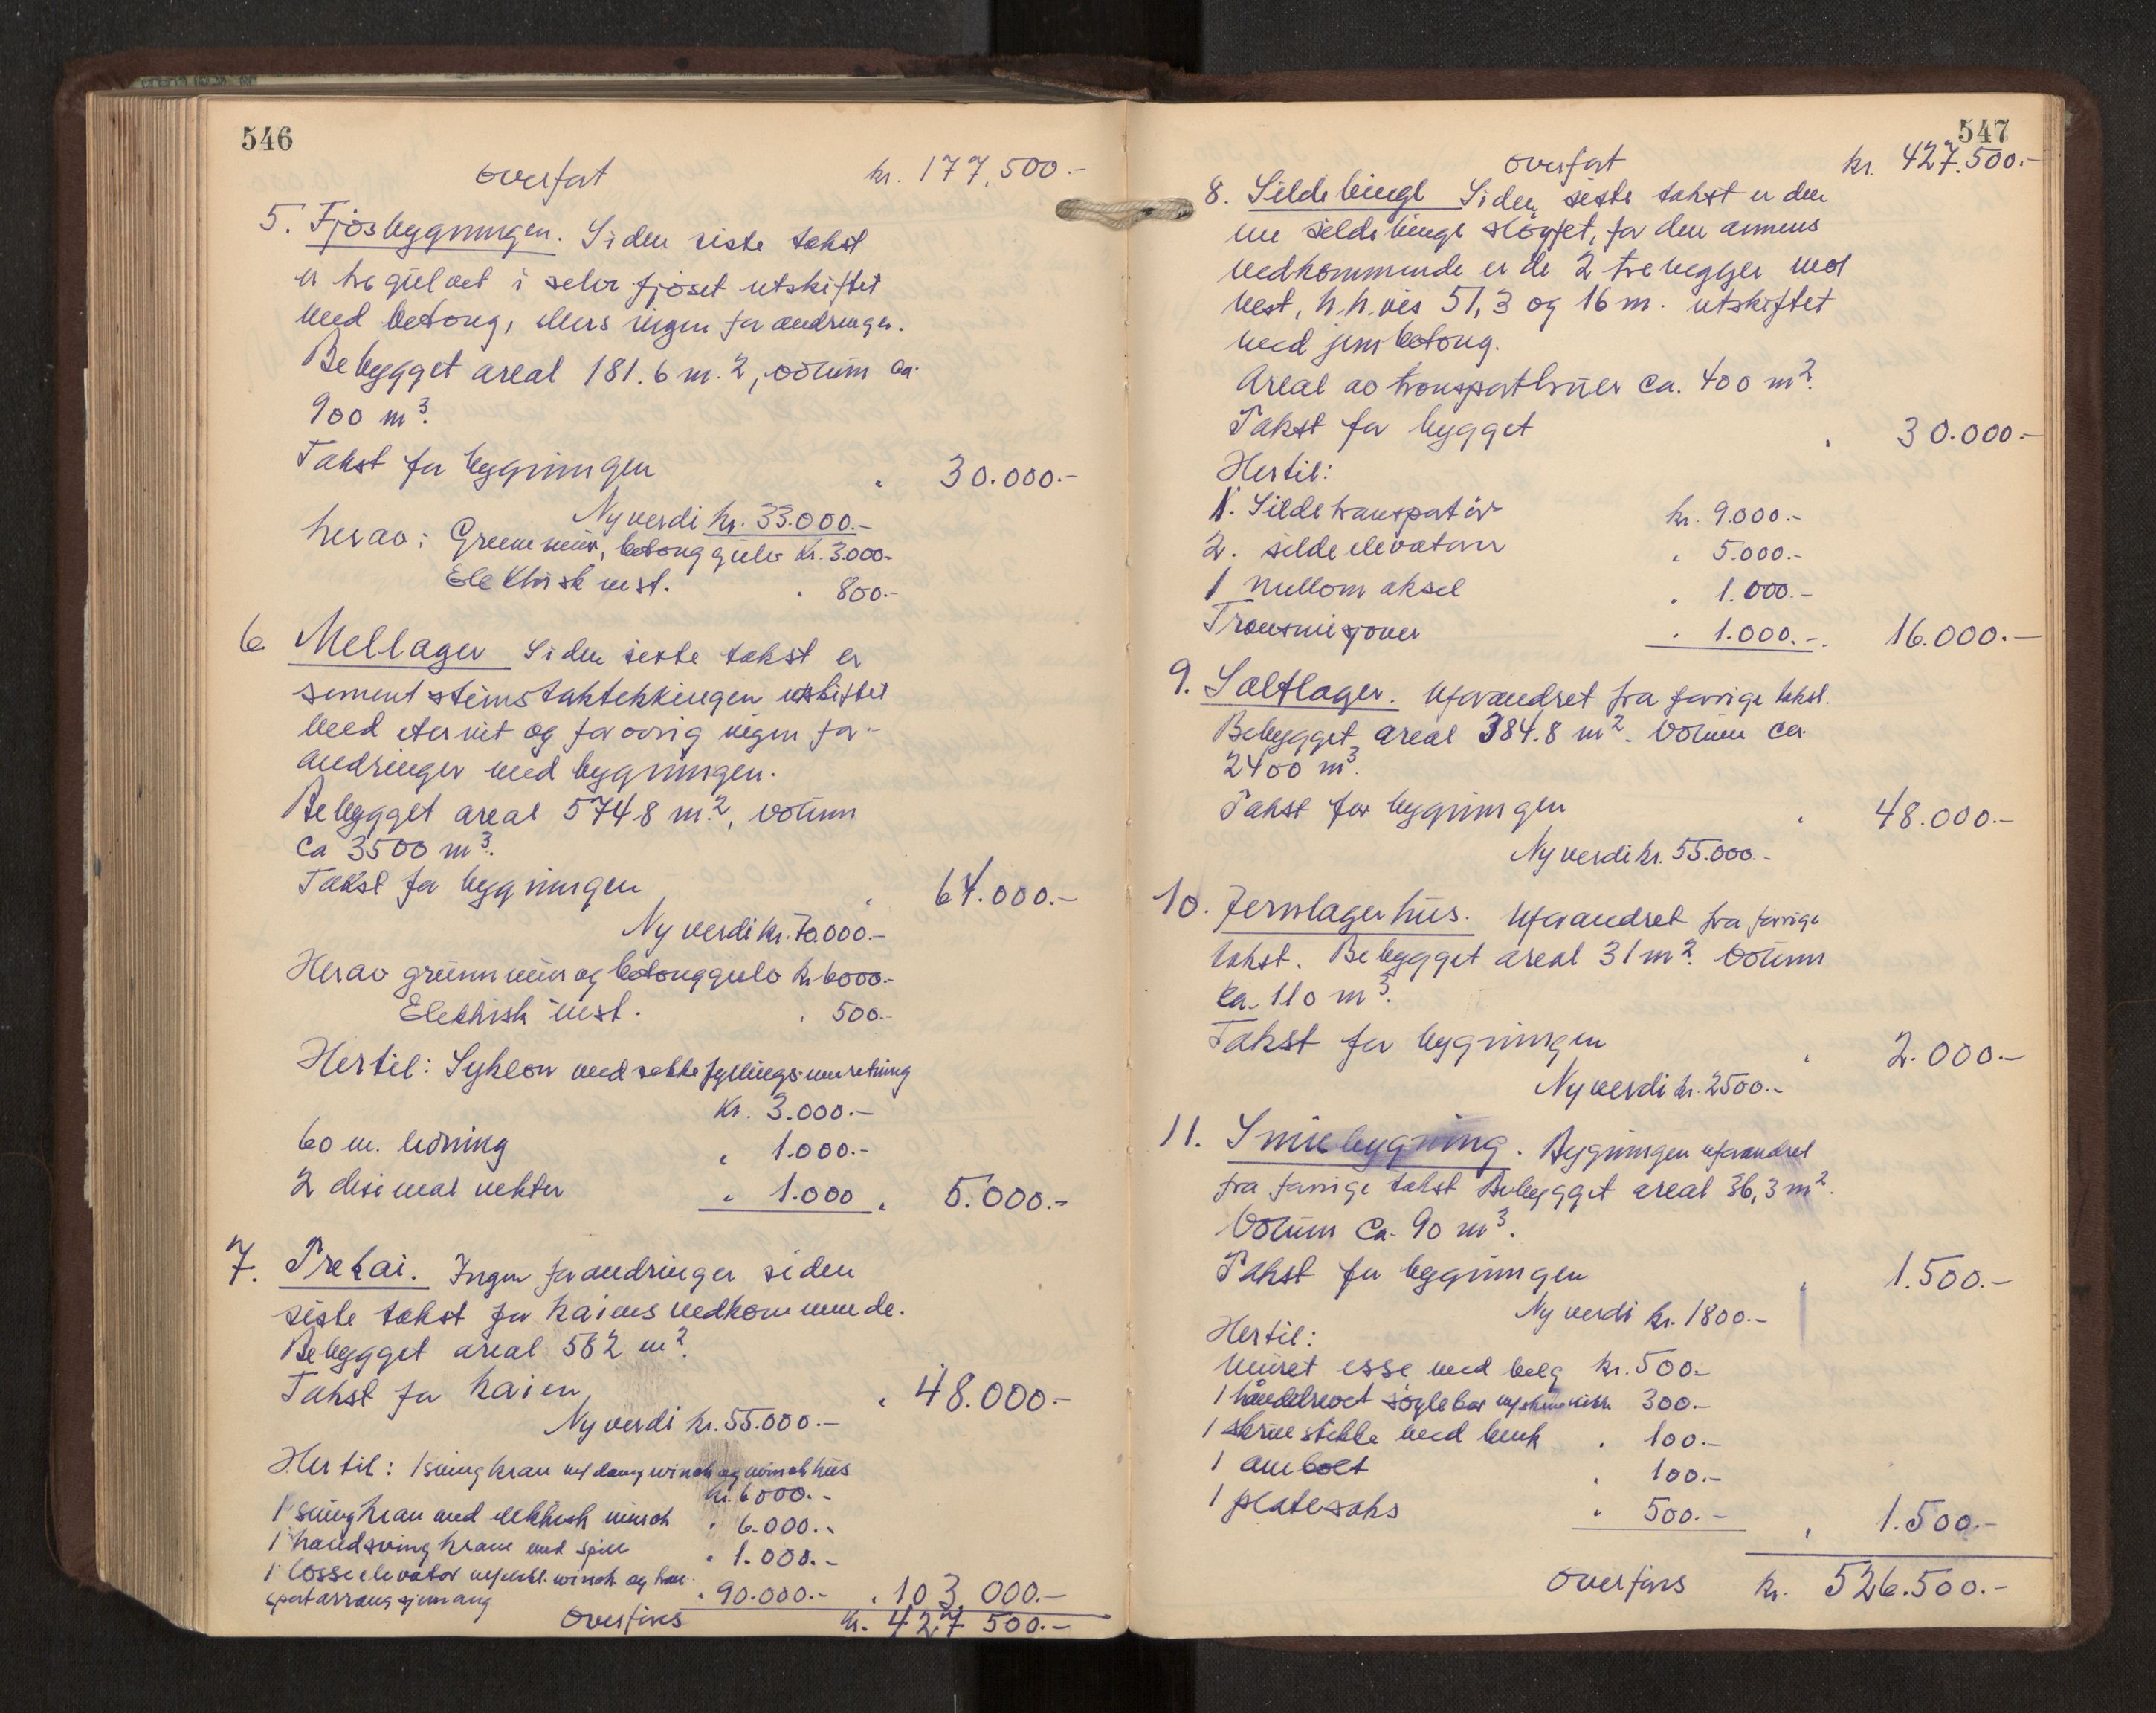 546
overført kr. 177.500.-
5. Fjøsbygningen. Siden siste takst
er tregulvet i selve fjøset utskiftet
med betong, ellers ingen forandringer.
Bebygget areal 181.6 m.2, volum ca.
900 m3.
Takst for bygningen " 30.000.-
Nyverdi kr. 33.000.-
herav: Grunnmur, betonggulv kr. 3.000.-
Elektrisk inst. " 800.-
6. Mellager Siden siste takst er
sementsteinstaktekkingen utskiftet
med eternit og forøvrig ingen for-
andringer med bygningen.
Bebygget areal 574.8 m.2, volum
ca 3500 m3.
Takst for bygningen " 64.000.-
Ny verdi kr. 70.000.-
Herav grunnmur og betonggulv kr 6000.-
Elektrisk inst. " 500.-
Hertil: Syklon med sekkefyllingsinnretning
kr. 3.000.-
60 m. ledning " 1.000.-
2 desimalvekter " 1.000 " 5.000.-
7. Trekai. Ingen forandringer siden
siste takst for kaiens vedkommende.
Bebygget areal 562 m2.
Takst for kaien " 48.000.-
Ny verdi kr. 55.000.-
Hertil: 1 svingkran m/dampwinch og winchhus
kr. 6000.-
1 svingkran med elektrisk winch " 6.000.-
1 handsvingkran med spill " 1.000.-
1 losseelevator m/elektr. winch og tran-
sportarrangemang " 90.000.- " 103.000.-
Overføres kr. 427.500.-
547
overført kr. 427.500.-
8. Sildebinge Siden siste takst er den
ene sildebinge sløyfet, for den annens
vedkommende er de 2 trevegger mot
vest, h.h.vis 51,3 og 16 m. utskiftet
med jernbetong.
Areal av transportbruer ca. 400 m2.
Takst for bygget " 30.000.-
Hertil:
1. Sildetransportør kr. 9.000.-
2. sildeelevatorer " 5.000.-
1 mellomaksel " 1.000.-
Transmisjoner " 1.000.-. 16.000.-
9. Saltlager. Uforandret fra forrige takst.
Bebygget areal 384.8 m2. Volum ca.
2400 m3.
Takst for bygningen " 48.000.-
Ny verdi kr. 55.000.-
10. Jernlagerhus. Uforandret fra forrige
takst. Bebygget areal 31 m2. Volum
ca. 110 m3.
Takst for bygningen " 2.000.-
Ny verdi kr. 2500.-
11. Smiebygning. Bygningen uforandret
fra forrige takst Bebygget areal 36,3 m2.
Volum ca. 90 m3.
Takst for bygningen " 1.500.-
Ny verdi kr. 1800.-
Hertil:
Muret esse med belg kr. 500.-
1 hånddrevet søylebor 300.-
1 skruestikke med benk " 100.-
1 ambolt " 100.-
1 platesaks " 500.- " 1.500.-
Overføres kr. 526.500.-